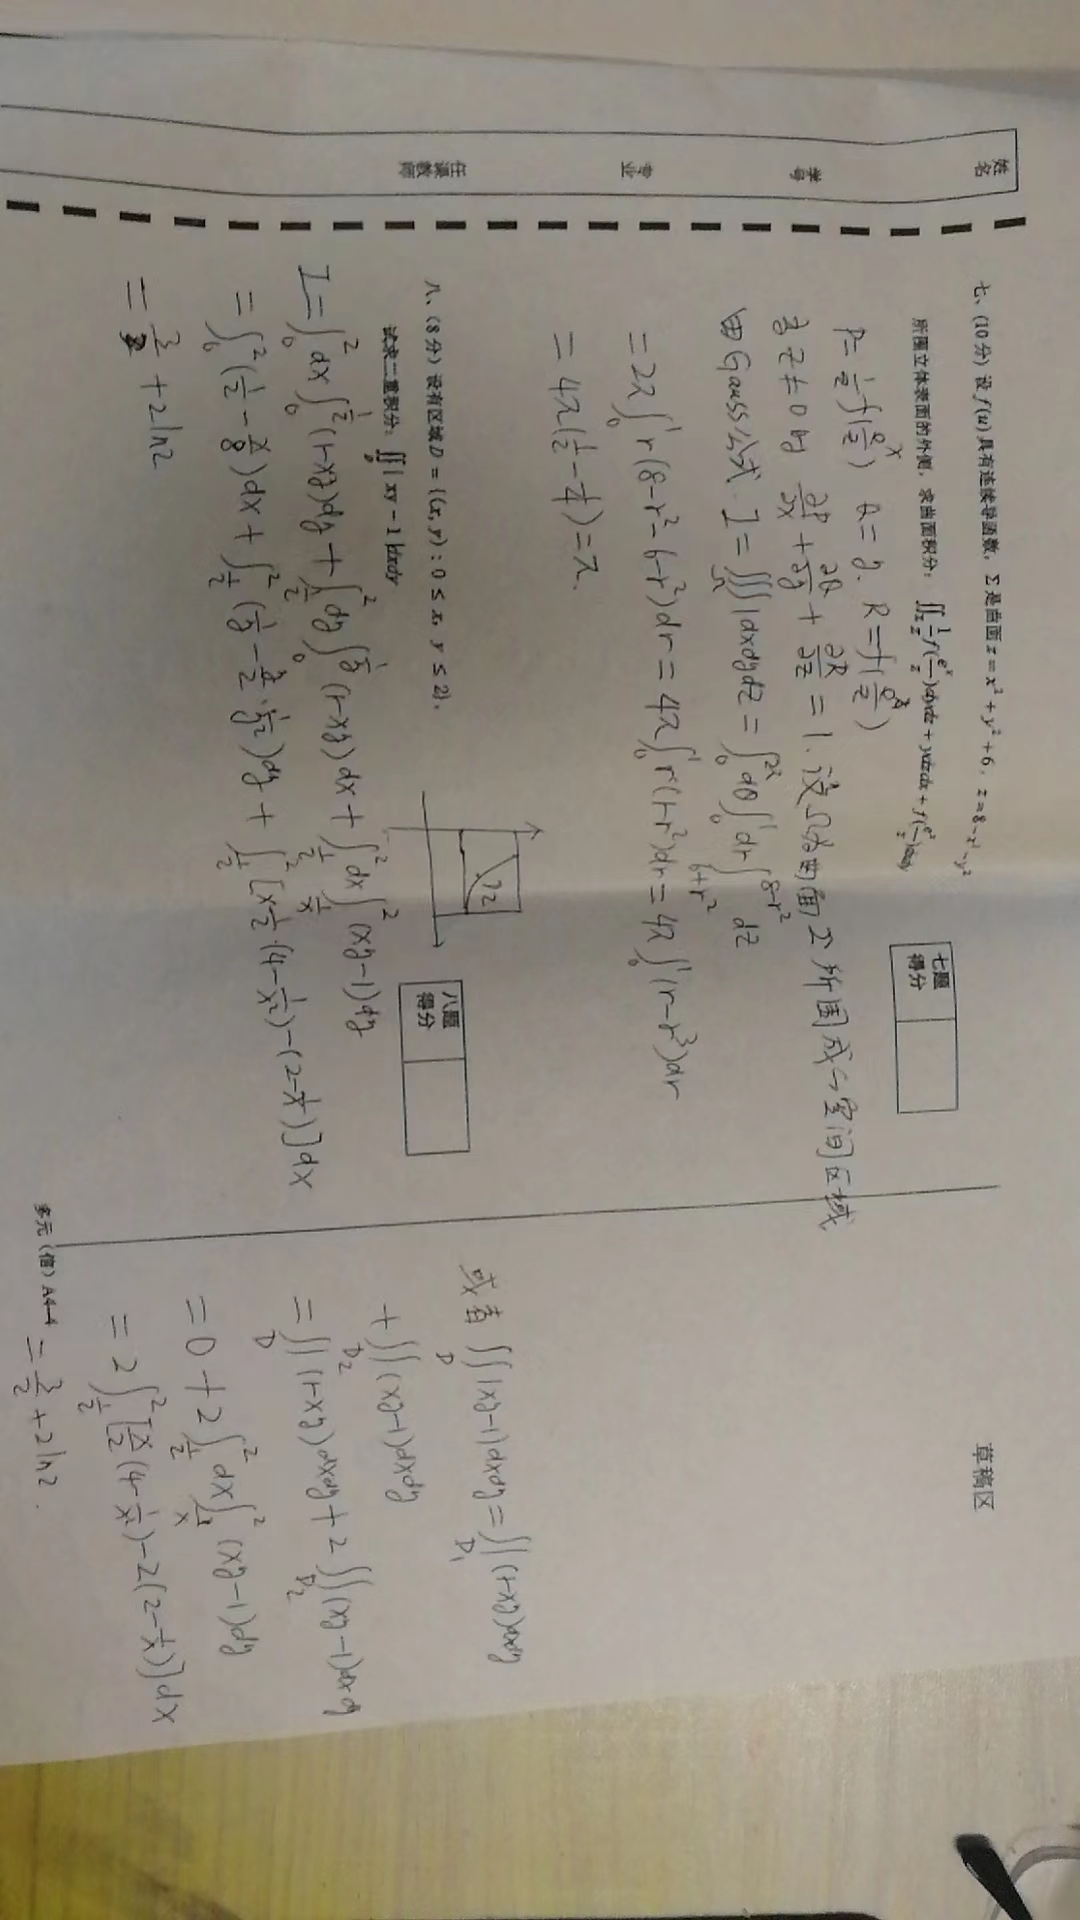 姓名
学号
专业
任课教师
七、(10分) 设 f(u) 具有连续导函数, Σ 是曲面 z = x² + y² + 6, z = 8 − x² − y²
所围立体表面的外侧, 求曲面积分: ∬_Σ (1/z) f(e^x/z) dydz + ydzdx + f(e^x/z) dxdy
七题
得分
P = (1/z) f(e^x/z) Q = y. R = f(e^x/z)
当 z ≠ 0 时 ∂P/∂x + ∂Q/∂y + ∂R/∂z = 1. 设 Ω 为曲面 Σ 所围成的空间区域
由 Gauss 公式. I = ∭_Ω 1 dxdydz = ∫_0^{2π} dθ ∫_0^1 dr ∫_{6+r²}^{8−r²} dz
= 2π ∫_0^1 r(8−r²−6−r²)dr = 4π ∫_0^1 r(1−r²)dr = 4π ∫_0^1 (r−r³)dr
= 4π(1/2 − 1/4) = π.
八、(8分) 设有区域 D = {(x, y) : 0 ≤ x, y ≤ 2},
试求二重积分: ∬_D | xy − 1 | dxdy
八题
得分
I = ∫_0^2 dx ∫_0^{1/2} (1−xy)dy + ∫_{1/2}^2 dy ∫_0^{1/y} (1−xy)dx + ∫_{1/2}^2 dx ∫_{1/x}^2 (xy−1)dy
= ∫_0^2 (1/2 − x/8)dx + ∫_{1/2}^2 (1/y − y/2 · 1/y²)dy + ∫_{1/2}^2 [x·1/2·(4 − 1/x²) − (2 − 1/x)]dx
= 3/2 + 2ln2
草稿区
或者 ∬_D |xy−1|dxdy = ∬_{D1} (1−xy)dxdy
+ ∬_{D2} (xy−1)dxdy
= ∬_D (1−xy)dxdy + 2∬_{D2} (xy−1)dxdy
= 0 + 2 ∫_{1/2}^2 dx ∫_{1/x}^2 (xy−1)dy
= 2 ∫_{1/2}^2 [x/2 (4 − 1/x²) − (2 − 1/x)]dx
= 3/2 + 2ln2.
多元(信) A4-4